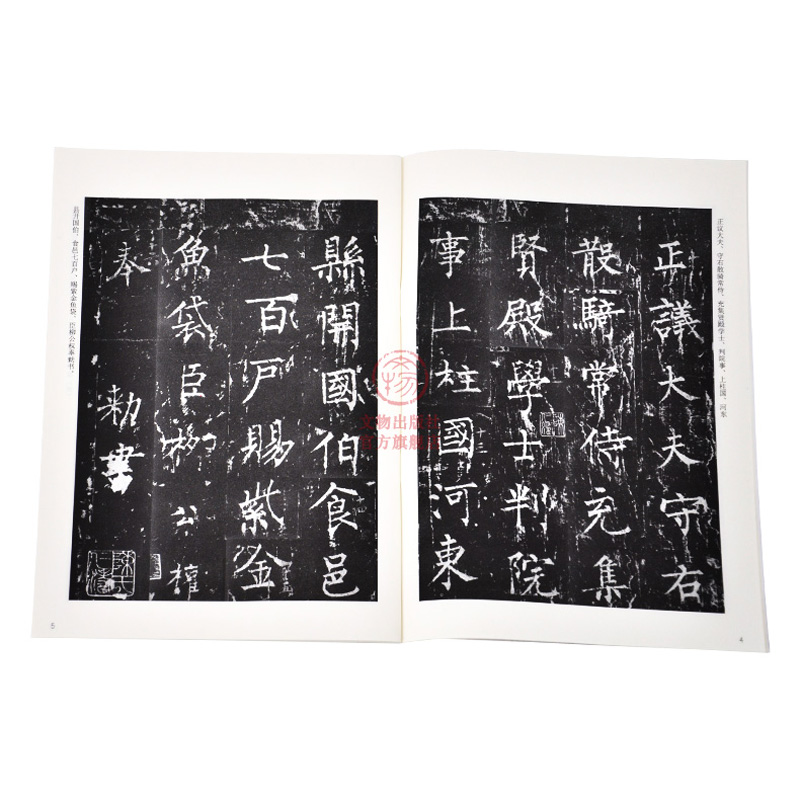 正议大夫、守右散骑常侍、充集贤殿学士、判院事、上柱国、河东
正議大夫守右
散騎常侍充集
賢殿學士判院
事上柱國河東
4
縣開國伯食邑
七百戶賜紫金
魚袋臣柳公權
奉 敕書
县开国伯、食邑七百户、赐紫金鱼袋、臣柳公权奉敕书。
5
文物出版社
官方旗舰店